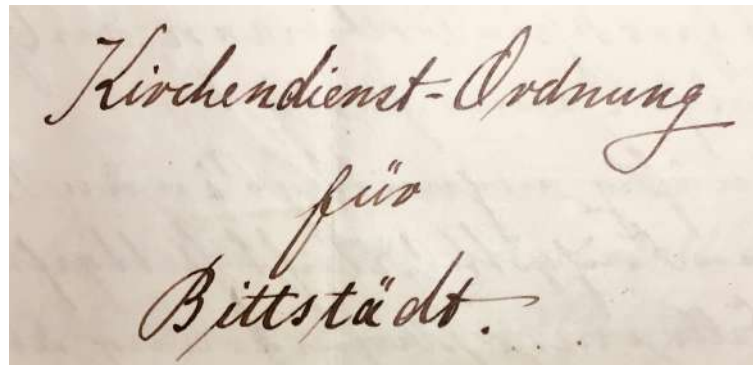 Kirchendienst-Ordnung
für
Bittstädt.